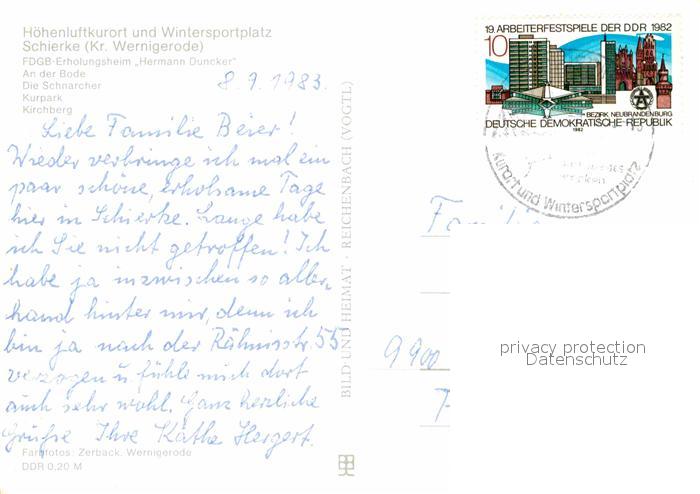 Höhenluftkurort und Wintersportplatz
Schierke (Kr. Wernigerode)
FDGB-Erholungsheim „Hermann Duncker"
An der Bode
Die Schnarcher
Kurpark
Kirchberg
8.9.1983.
Liebe Familie Beier!
Wieder verbringe ich mal ein
paar schöne, erholsame Tage
hier in Schierke. Lange habe
ich Sie nicht getroffen! Ich
habe ja inzwischen so aller-
hand hinter mir, denn ich
bin ja nach der Rähnisstr. 55
verzogen u. fühle mich dort
auch sehr wohl. Ganz herzliche
Grüße Ihre Käthe Hergert.
Farbfotos: Zerback, Wernigerode
DDR 0,20 M
BILD UND HEIMAT · REICHENBACH (VOGTL)
19. ARBEITERFESTSPIELE DER DDR 1982
10
BEZIRK NEUBRANDENBURG
DEUTSCHE DEMOKRATISCHE REPUBLIK
1982
Kurort und Wintersportplatz
Famili
9900
privacy protection
Datenschutz